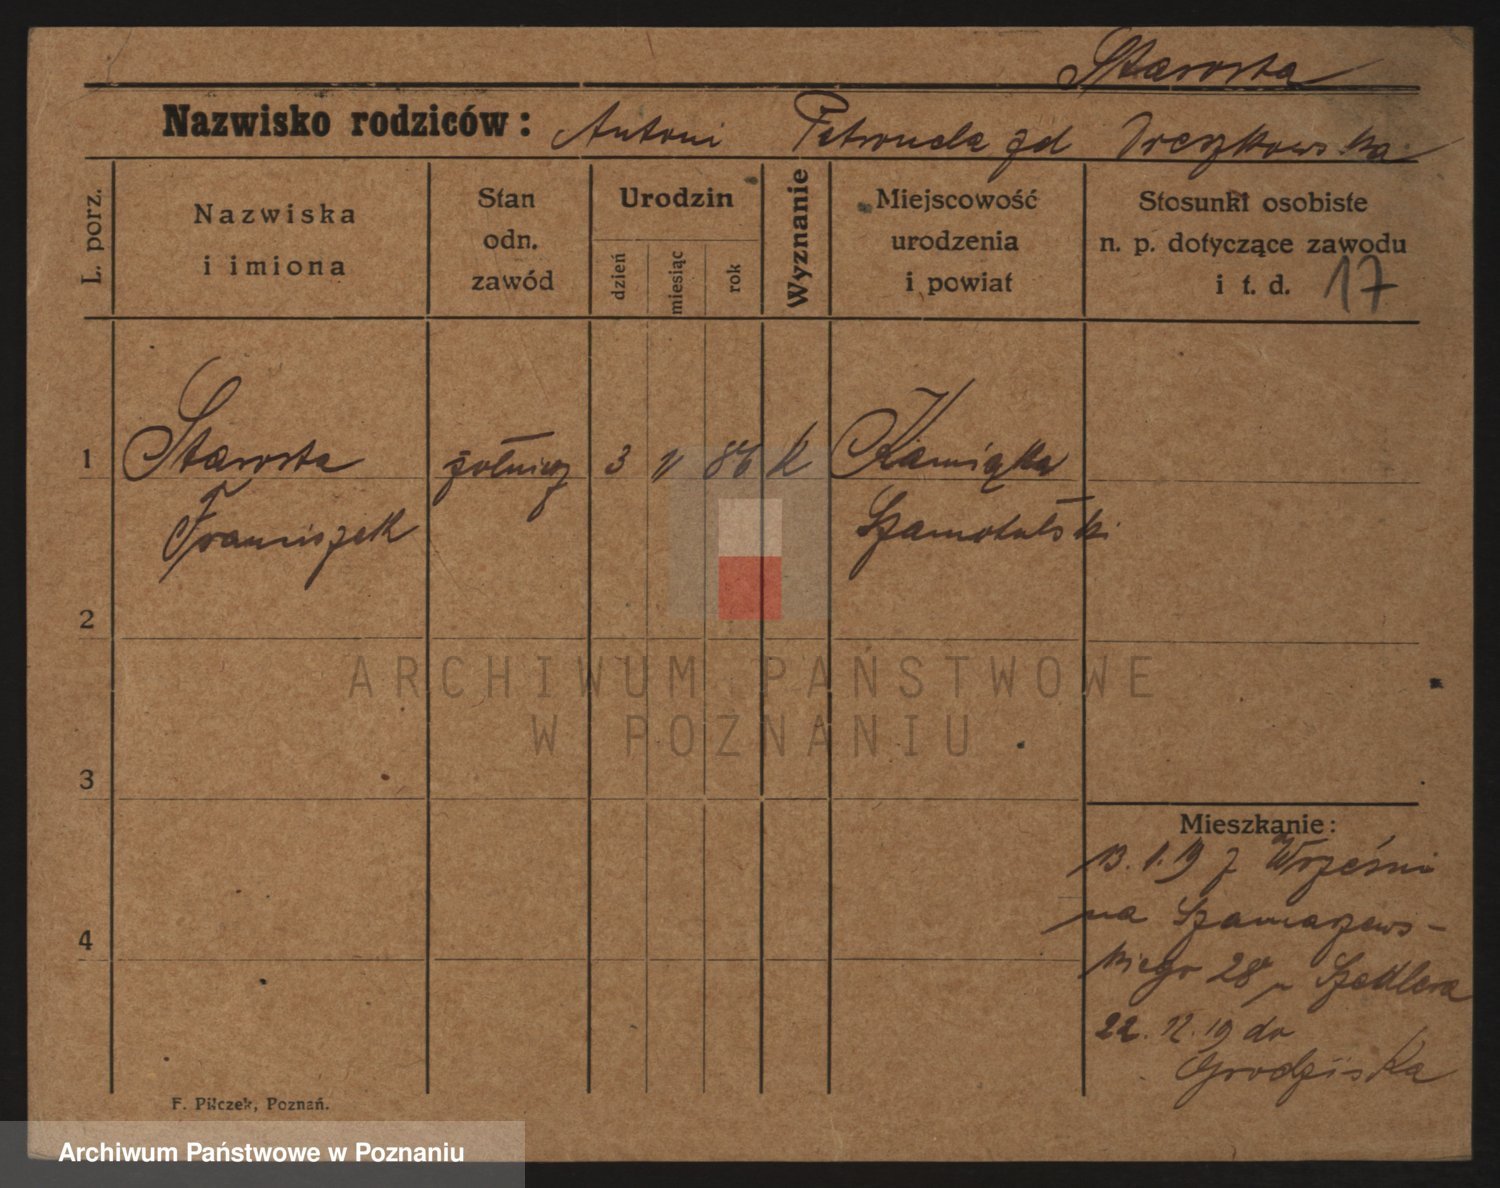 Starosta
Nazwisko rodziców: Antoni Petronela zd
L. porz.
Nazwiska
i imiona
Stan
odn.
zawód
Urodzin
dzień
miesiąc
rok
Wyznanie
Miejscowość
urodzenia
i powiat
Stosunki osobiste
n. p. dotyczące zawodu
i t. d. 17
1 Starosta żołnierz 3 11 86 k Kamiąka
Franciszek Szamotulski
2
3
4
ARCHIWUM PAŃSTWOWE
W POZNANIU
Mieszkanie:
13. 1. 19 z Wrześni
na Szamarzews-
kiego 28 u Szedlera
22. 12. 19 do
Grodziska
F. Pilczek, Poznań.
Archiwum Państwowe w Poznaniu